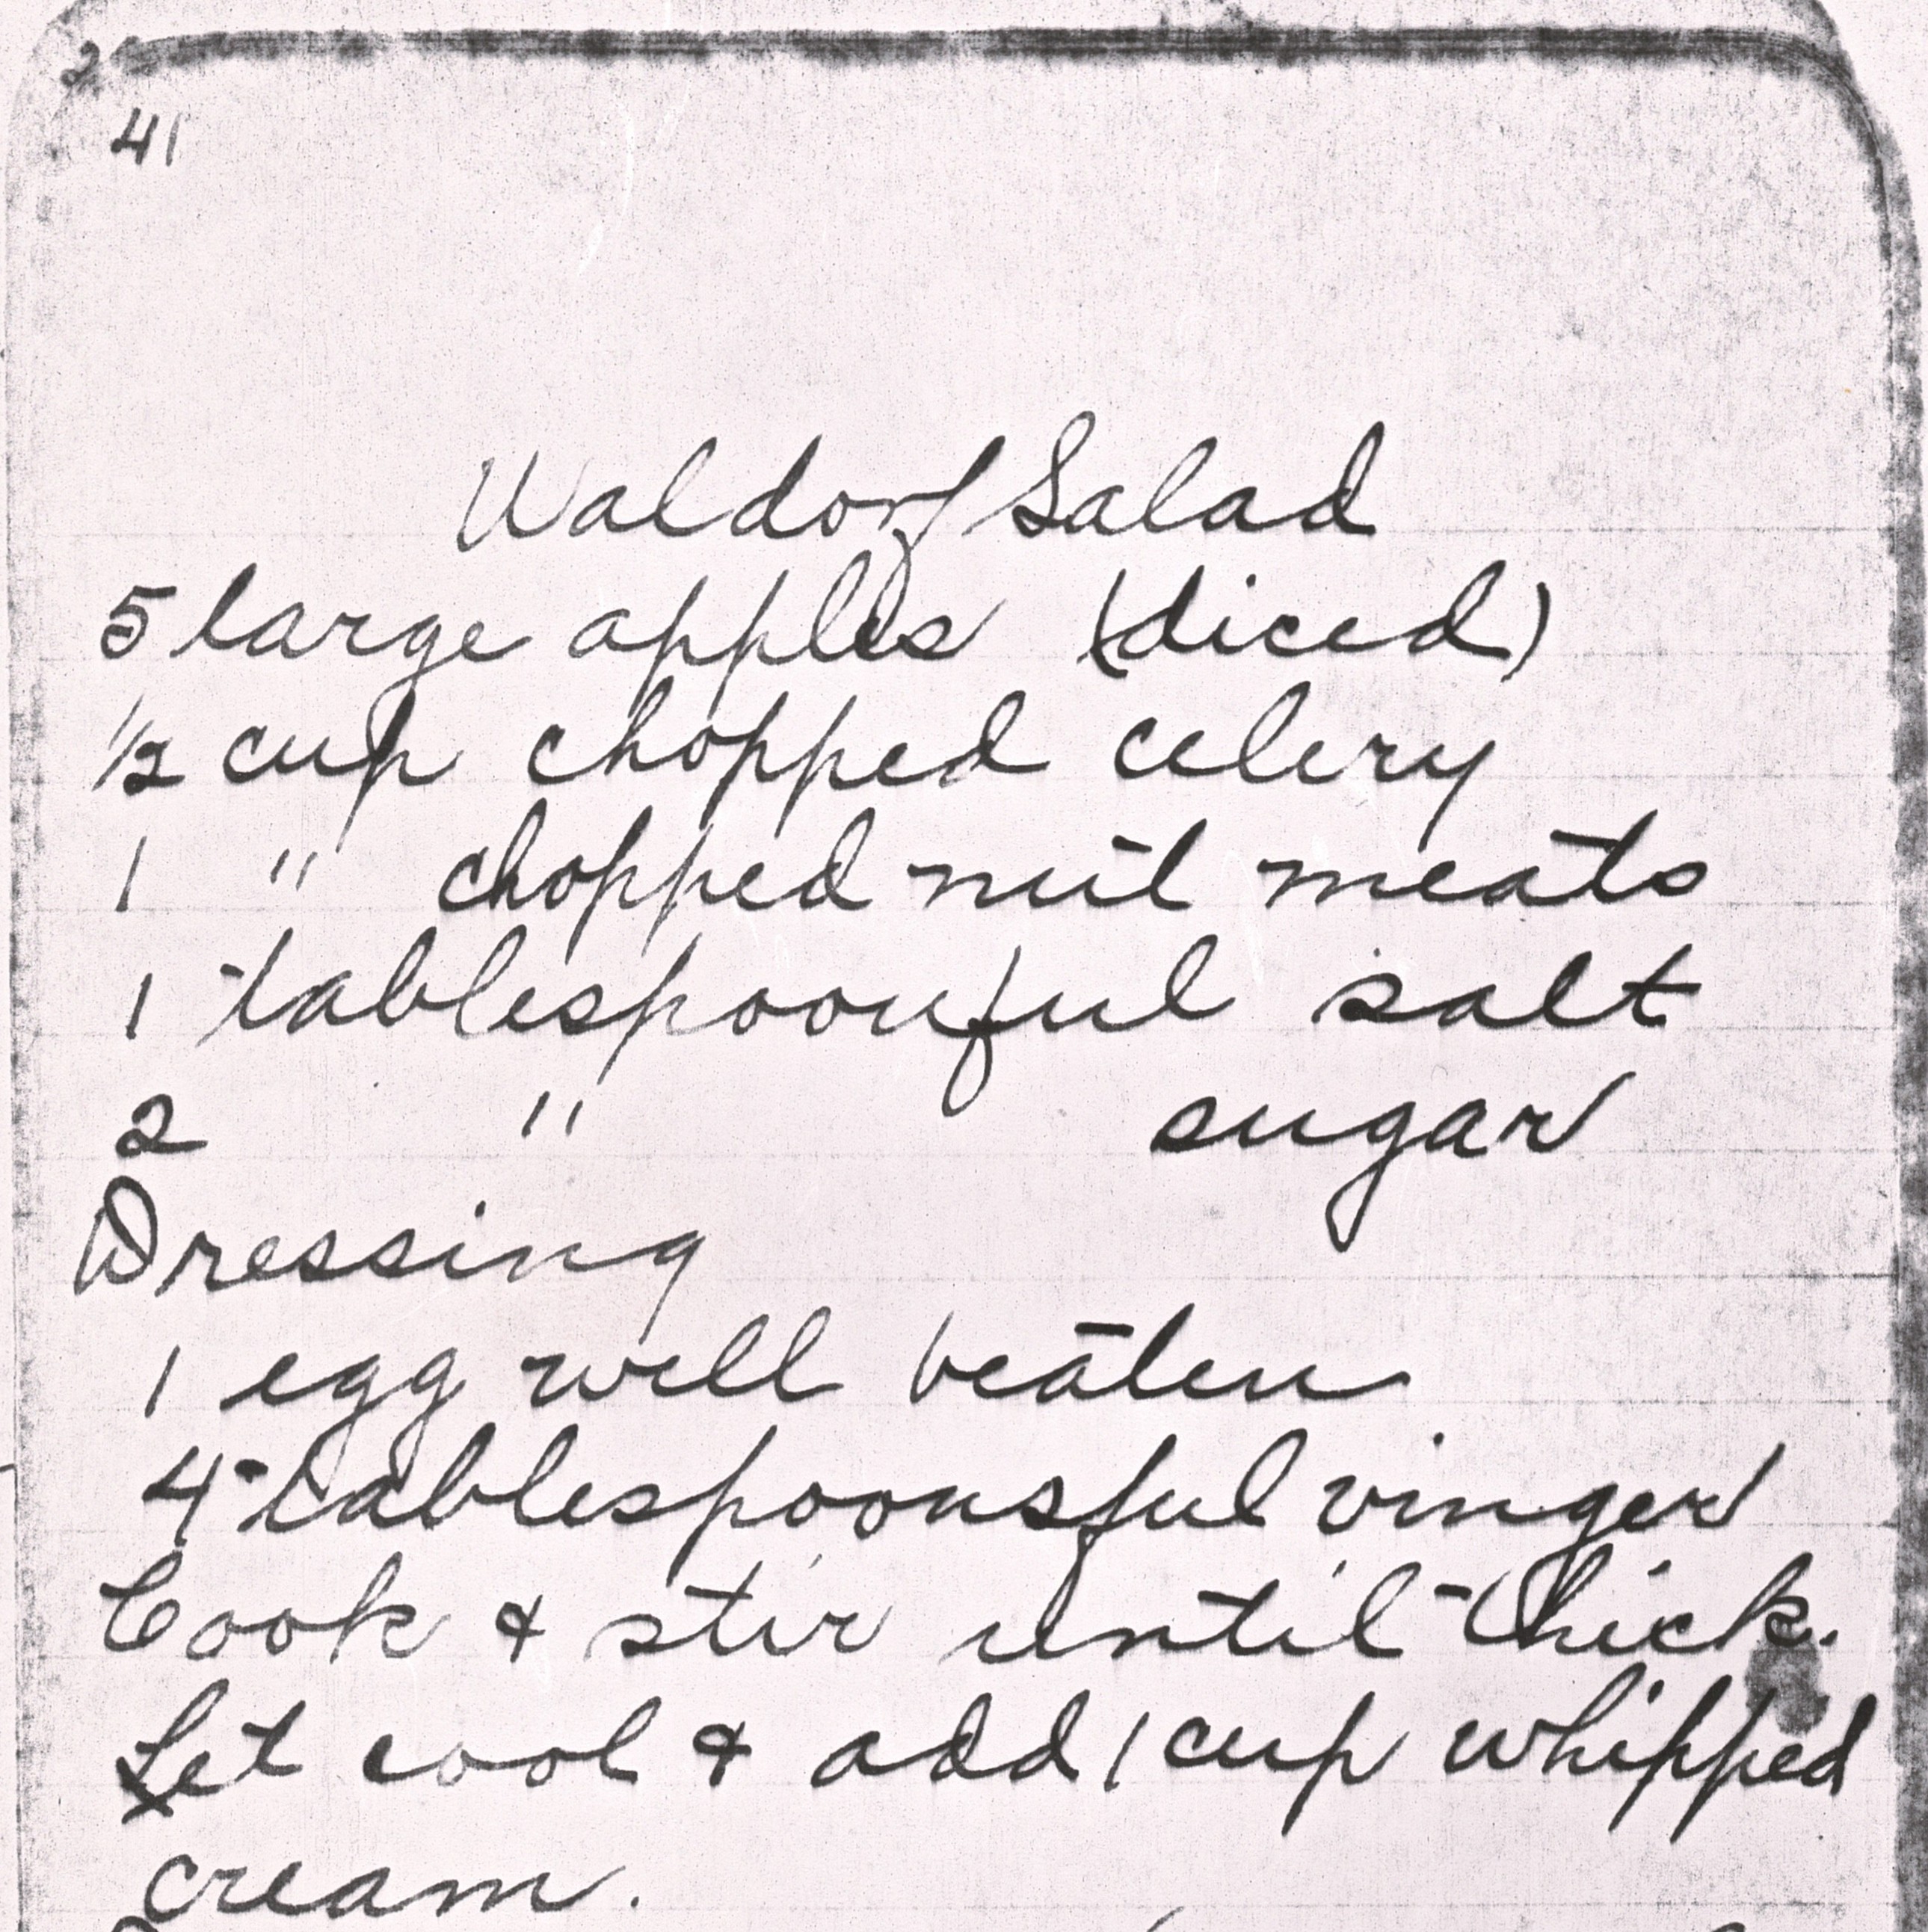 41
Waldorf Salad
5 large apples (diced)
1/2 cup chopped celery
1 " chopped nut meats
1 tablespoonful salt
2 " sugar
Dressing
1 egg well beaten
4 tablespoonsful vinger
Cook & stir until thick.
Let cool & add 1 cup whipped
cream.